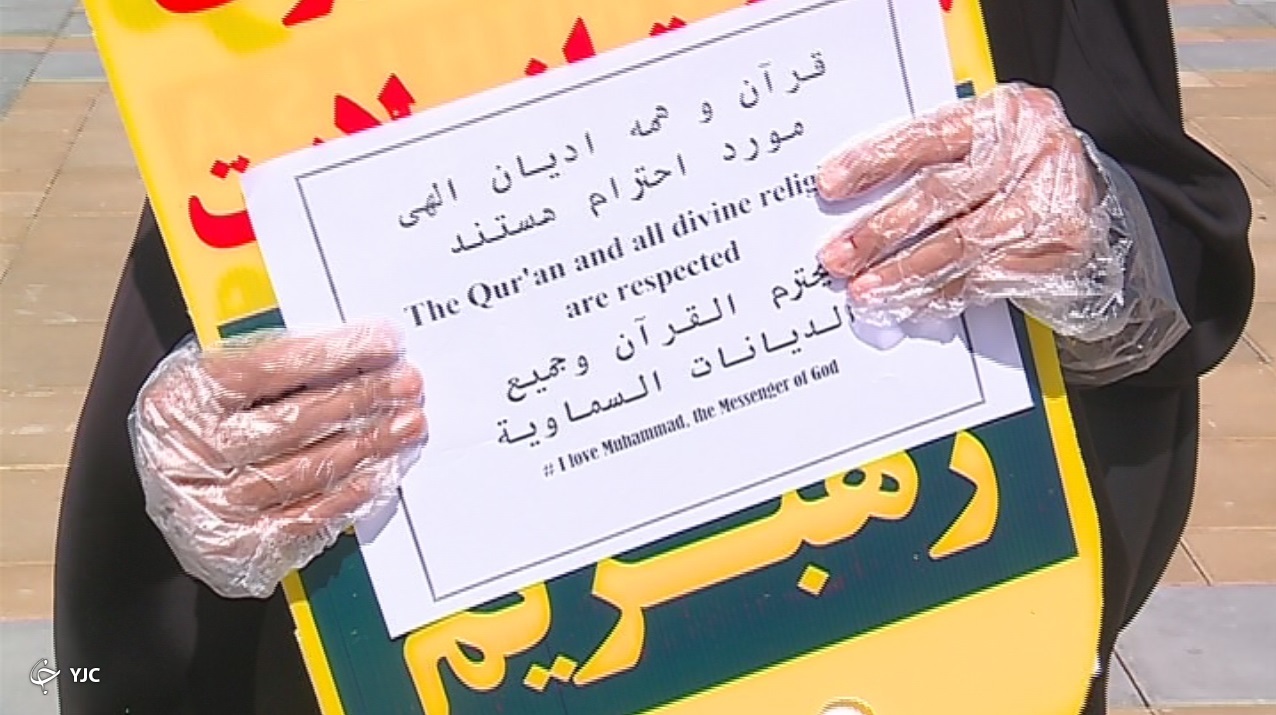 قرآن و همه ادیان الهی
مورد احترام هستند
The Qur'an and all divine
are respected
القرآن وجميع
الديانات السماوية
# I love Muhammad, the Messenger of God
رهبریم
YJC